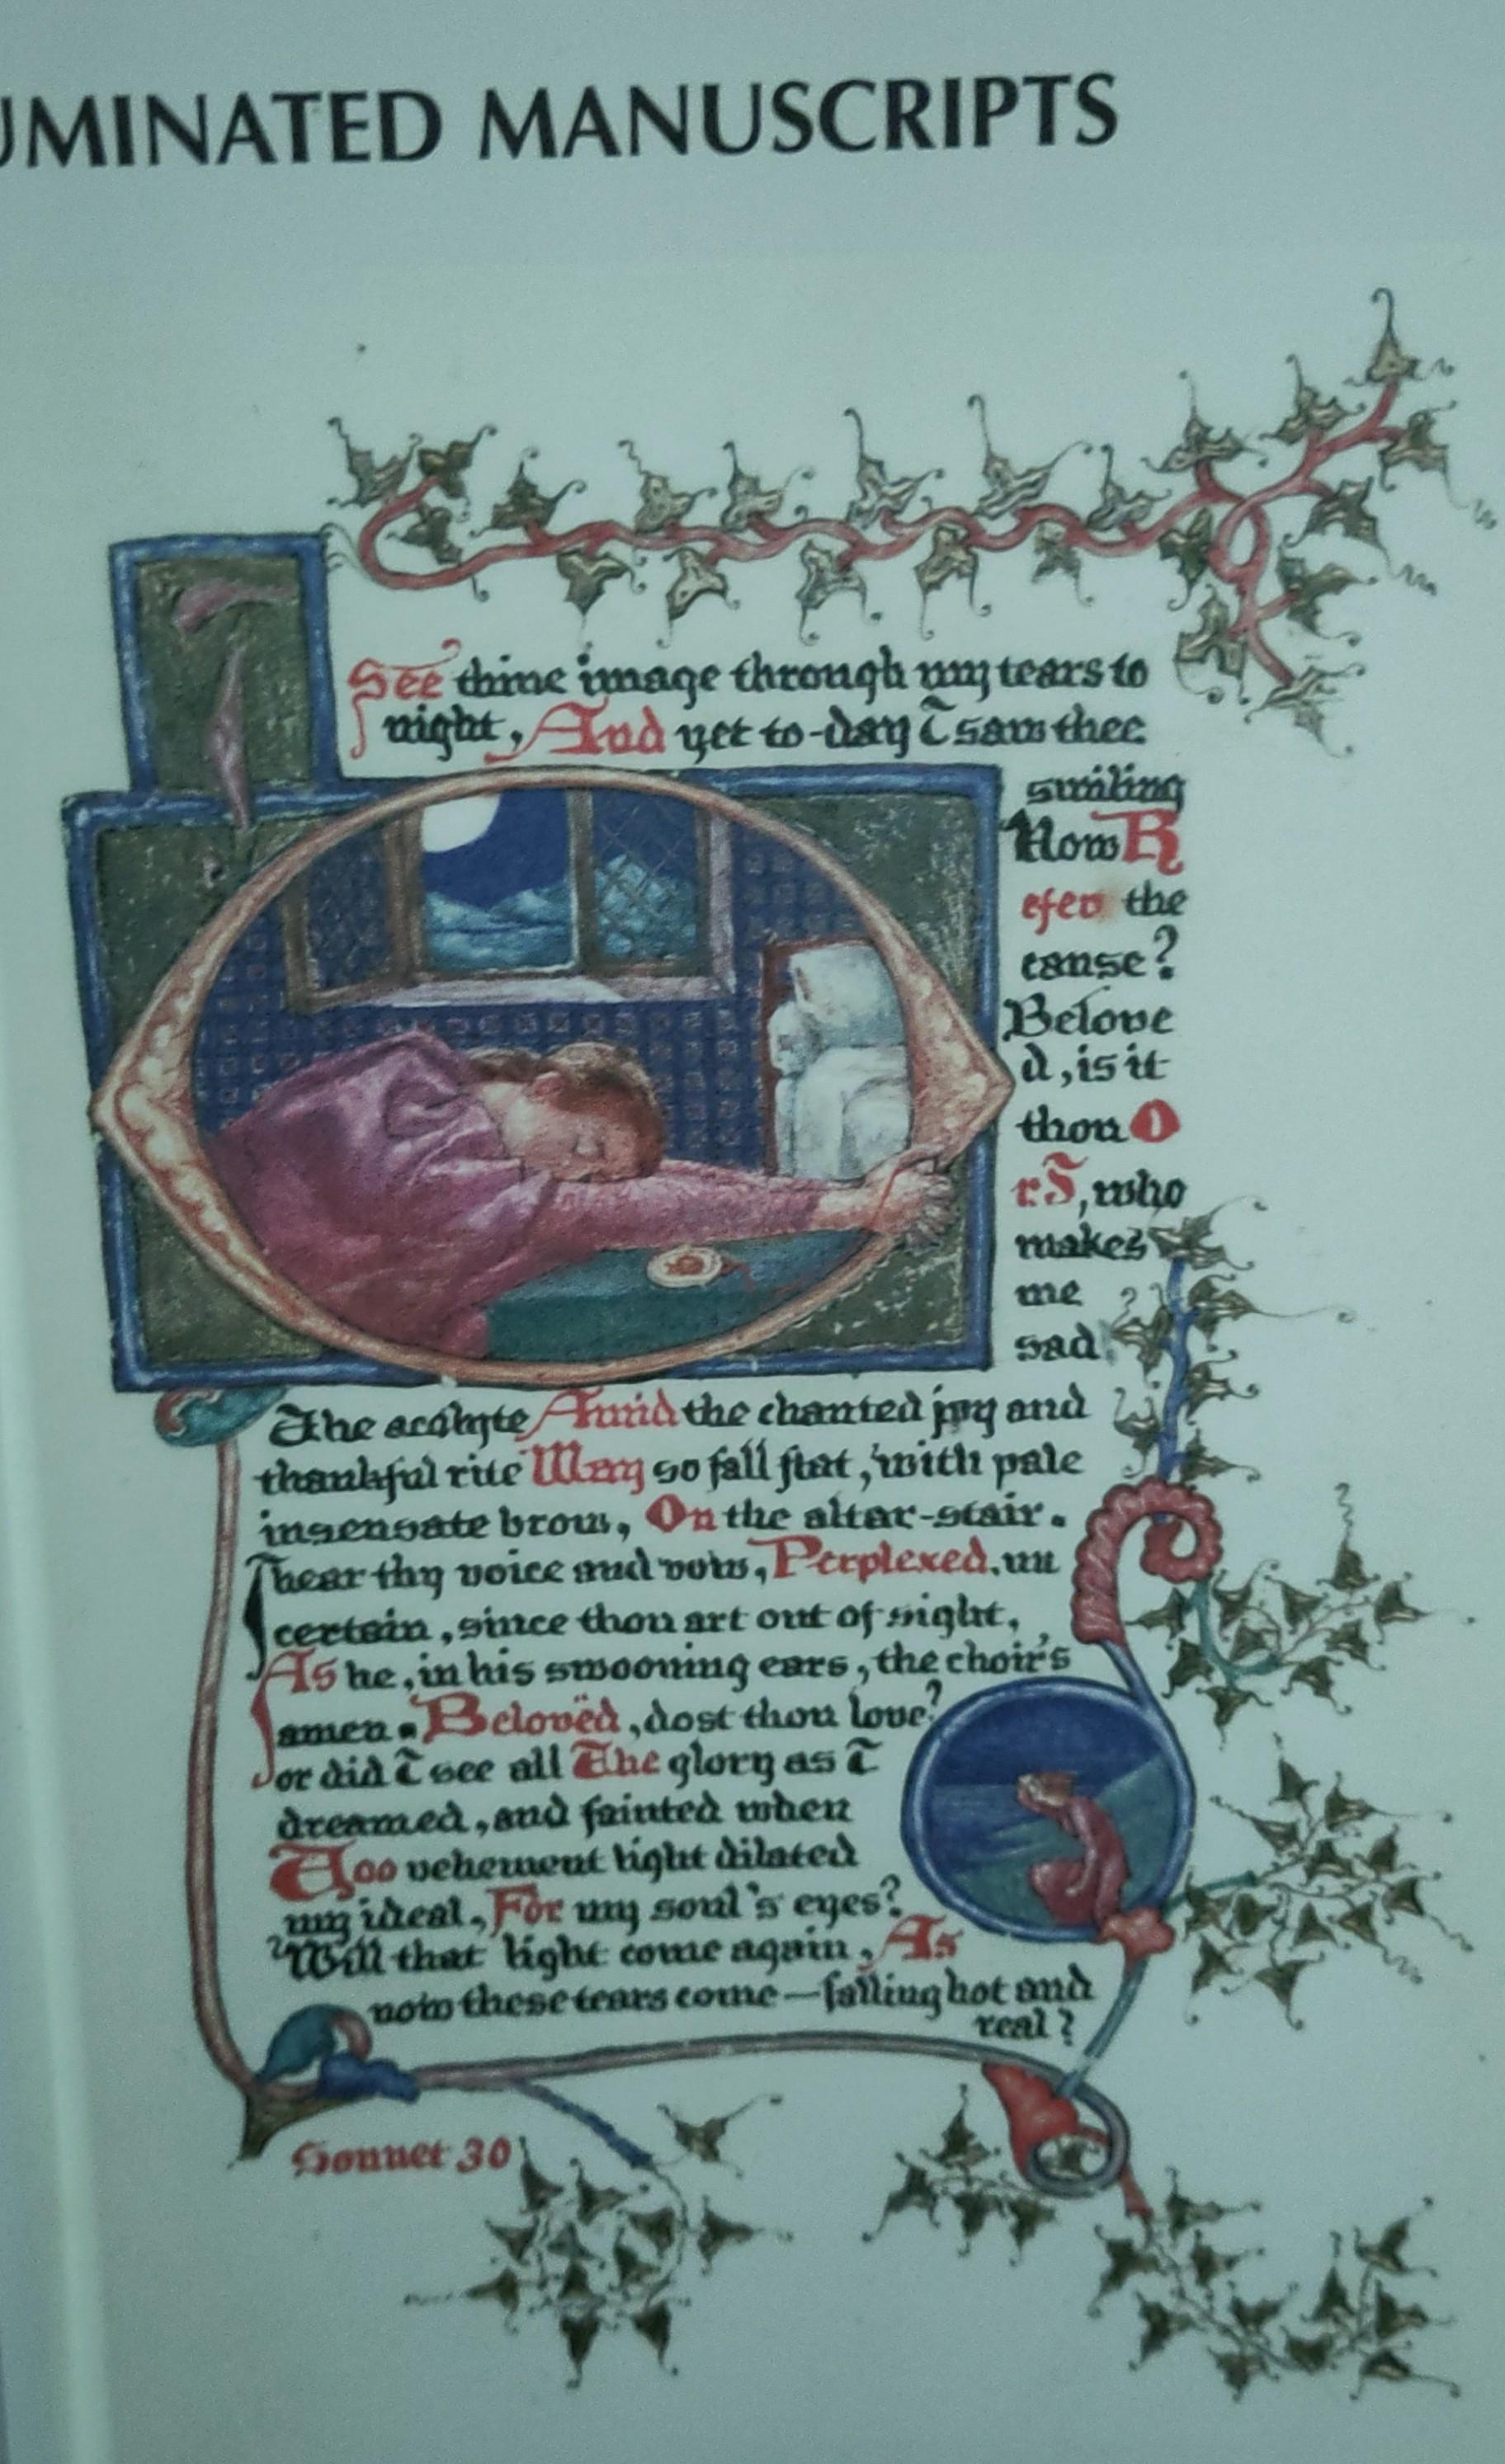 UMINATED MANUSCRIPTS
I
See thine image through my tears to
night, And yet to-day I saw thee
smiling
How R
efer the
cause?
Belove
d, is it
thou O
r I, who
makes
me
sad?
The acolyte Amid the chanted joy and
thankful rite May so fall flat, with pale
insensate brow, On the altar-stair.
I hear thy voice and vow, Perplexed, un
certain, since thou art out of sight,
As he, in his swooning ears, the choir's
amen. Belovëd, dost thou love?
or did I see all The glory as I
dreamed, and fainted when
Too vehement light dilated
my ideal, For my soul's eyes?
Will that light come again, As
now these tears come—falling hot and
real?
Sonnet 30